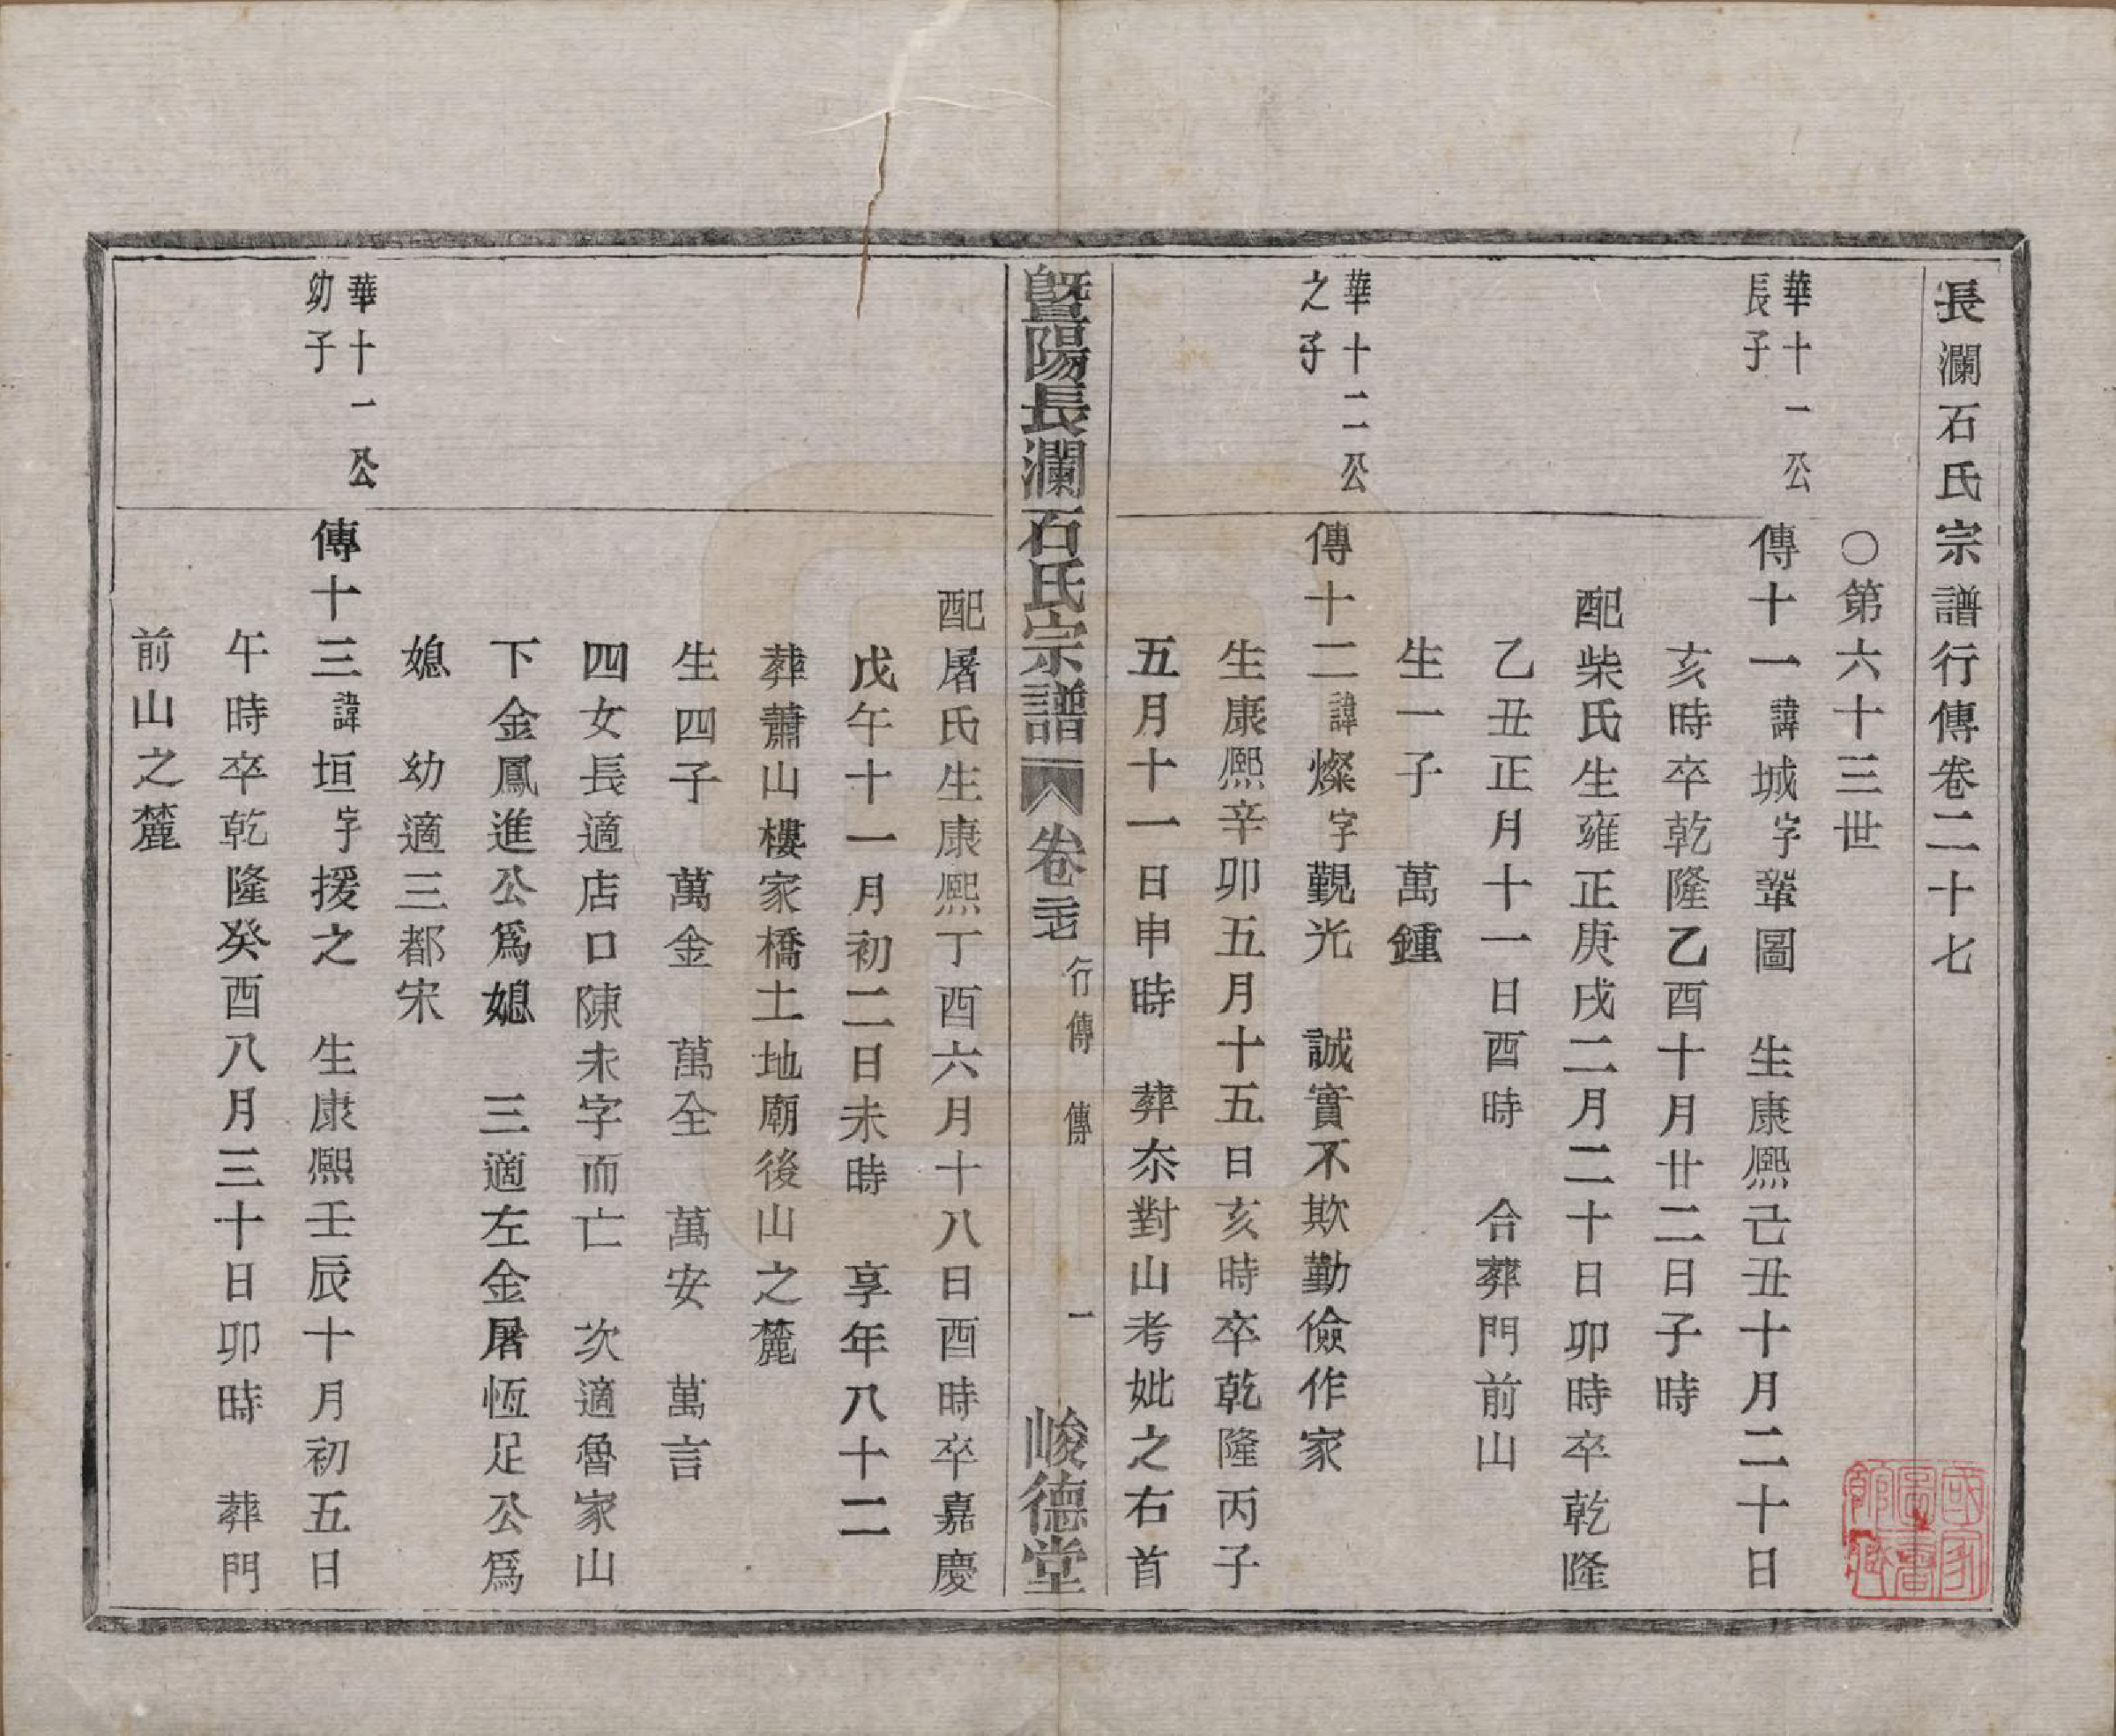 長瀾石氏宗譜行傳卷二十七
〇第六十三世
華十一公
長子
傳十一諱城字鞏圖　生康熙己丑十月二十日
亥時卒乾隆乙酉十月廿二日子時
配柴氏生雍正庚戌二月二十日卯時卒乾隆
乙丑正月十一日酉時　合葬門前山
生一子　萬鍾
華十二公
之子
傳十二諱燦字觀光　誠實不欺勤儉作家
生康熙辛卯五月十五日亥時卒乾隆丙子
五月十一日申時　葬夵對山考妣之右首
暨陽長瀾石氏宗譜　卷二七　行傳　傳　一　峻德堂
配屠氏生康熙丁酉六月十八日酉時卒嘉慶
戊午十一月初二日未時　享年八十二
葬蕭山樓家橋土地廟後山之麓
生四子　萬金　萬全　萬安　萬言
四女長適店口陳未字而亡　次適魯家山
下金鳳進公爲媳　三適左金屠恆足公爲
媳　幼適三都宋
華十一公
幼子
傳十三諱垣字援之　生康熙壬辰十月初五日
午時卒乾隆癸酉八月三十日卯時　葬門
前山之麓
國家
圖書
館藏